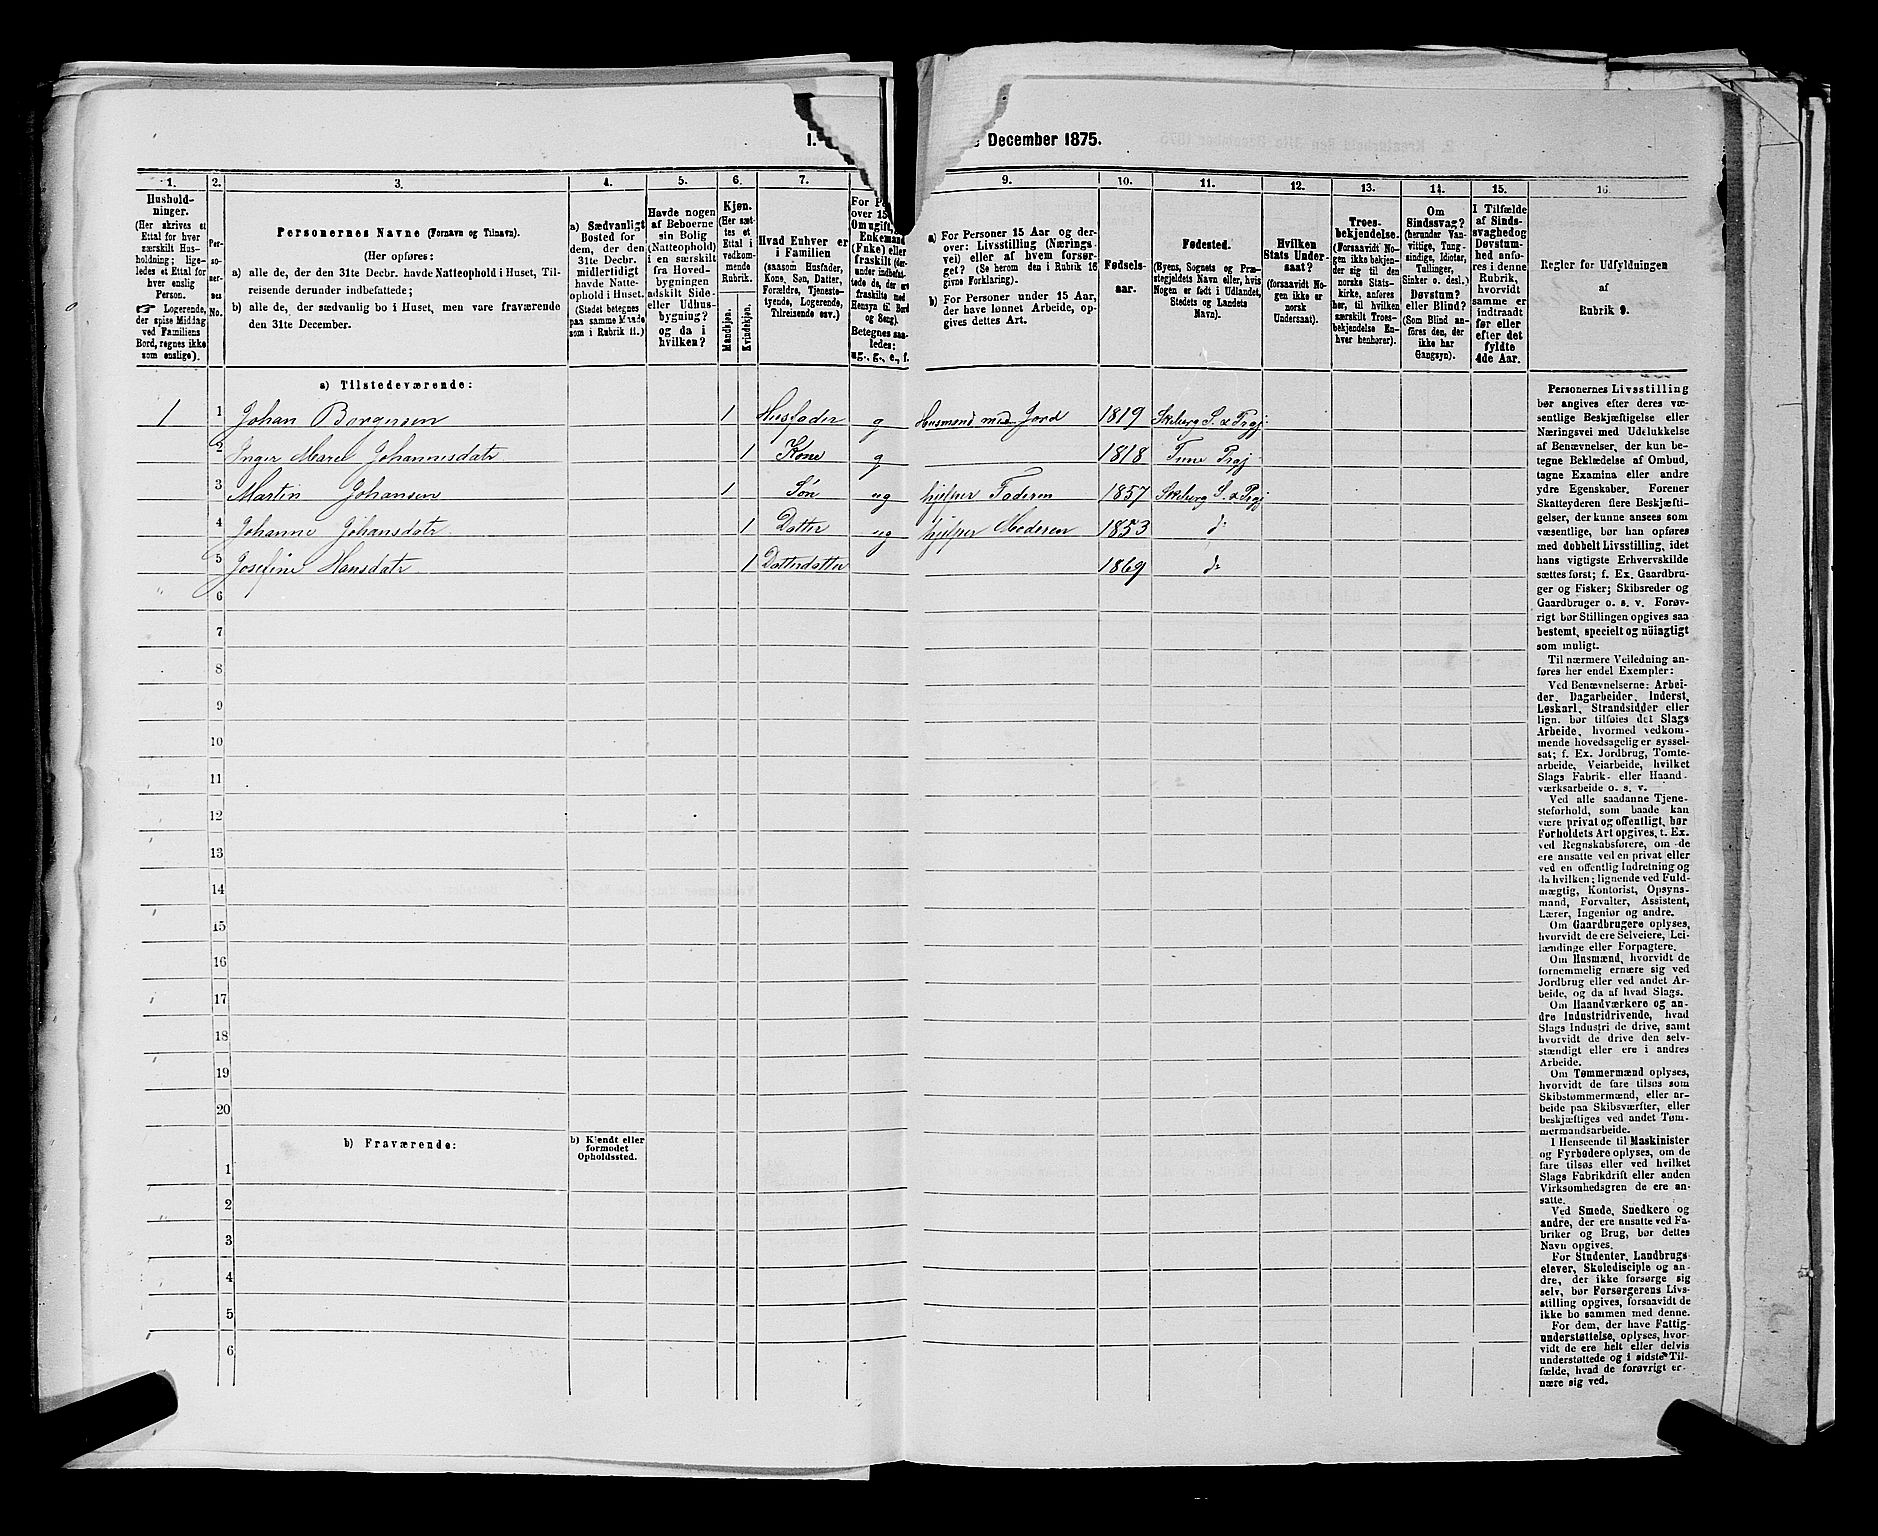 I.
December 1875.
1. 2. 3. 4. 5. 6. 7. 9. 10. 11. 12. 13. 14. 15. 16.
Hushold-
ninger.
(Her skrives et
Ettal for hver
særskilt Hus-
holdning; lige-
ledes et Ettal for
hver enslig
Person.
☞ Logerende,
der spise Middag
ved Familiens
Bord, regnes ikke
som enslige).
Per-
so-
ner-
nes
No.
Personernes Navne (Fornavn og Tilnavn).
(Her opføres:
a) alle de, der den 31te Decbr. havde Natteophold i Huset, Til-
reisende derunder indbefattede;
b) alle de, der sædvanlig bo i Huset, men vare fraværende
den 31te December.
a) Sædvanligt
Bosted for
dem, der den
31te Decbr.
midlertidigt
havde Natte-
ophold i Huset.
(Stedet betegnes
paa samme Maade
som i Rubrik 11.)
Havde nogen
af Beboerne
sin Bolig
(Natteophold)
i en særskilt
fra Hoved-
bygningen
adskilt Side-
eller Udhus-
bygning?
og da i
hvilken?
Kjøn.
(Her sæt-
tes et
Ettal i
vedkom-
mende
Rubrik.
Mandkjøn.
Kvindekjøn.
Hvad Enhver er
i Familien
(saasom Husfader,
Kone, Søn, Datter,
Forældre, Tjeneste-
tyende, Logerende,
Tilreisende osv.)
For Pe
over 15
Om ugift,
Enkemand
(Enke) eller
fraskilt (der-
under indbefat-
tede de, der ere
fraskilte med
Hensyn til Bord
og Seng).
Betegnes saa-
ledes:
ug., g., e., f.
a) For Personer 15 Aar og der-
over: Livsstilling (Nærings-
vei) eller af hvem forsør-
get? (Se herom den i Rubrik 16
givne Forklaring).
b) For Personer under 15 Aar,
der have lønnet Arbeide, op-
gives dettes Art.
Fødsels-
aar.
Fødested.
(Byens, Sognets og Præ-
stegjeldets Navn eller, hvis
Nogen er født i Udlandet,
Stedets og Landets
Navn).
Hvilken
Stats Under-
saat?
(forsaavidt No-
gen ikke er
norsk
Undersaat).
Troes-
bekjendelse.
(Forsaavidt No-
gen ikke bekjen-
der sig til den
norske Stats-
kirke, anføres
her, til hvilken
særskilt Troes-
bekjendelse En-
hver henhører).
Om
Sindssvag?
(herunder Van-
vittige, Tung-
sindige, Idioter,
Tullinger,
Sinker o. desl.)
Døvstum?
eller Blind?
(Som Blind an-
føres den, der
ikke har
Gangsyn).
I Tilfælde
af Sinds-
svaghed og
Døvstum-
hed anfø-
res i denne
Rubrik,
hvorvidt
samme er
indtraadt
før eller
efter det
fyldte
4de Aar.
Regler for Udfyldningen
af
Rubrik 9.
a) Tilstedeværende:
1 1 Johan Borgersen 1 Husfader g Husmand med Jord 1819 Skiberg S. & Prgj
2 Inger Marei Johannesdatr 1 Kone g 1818 Tune Prgj
3 Martin Johansen 1 Søn ug hjelper Faderen 1857 Skiberg S. & Prgj
4 Johanne Johansdatr 1 Datter ug hjelper Moderen 1853 do
5 Josefine Hansdatr 1 Datterdatter 1869 do
6
7
8
9
10
11
12
13
14
15
16
17
18
19
20
b) Fraværende:
b) Kjendt eller
formodet
Opholdssted.
1
2
3
4
5
6
Personernes Livsstilling
bør angives efter deres væ-
sentlige Beskjæftigelse eller
Næringsvei med Udelukkelse
af Benævnelser, der kun be-
tegne Beklædelse af Ombud,
tagne Examina eller andre
ydre Egenskaber. Forener
Skatteyderen flere Beskjæfti-
gelser, der kunne ansees som
væsentlige, bør han opføres
med dobbelt Livsstilling, idet
hans vigtigste Erhvervskilde
sættes først; f. Ex. Gaardbru-
ger og Fisker; Skibsreder og
Gaardbruger o. s. v. Forøv-
rigt bør Stillingen opgives saa
bestemt, specielt og nøiagtigt
som muligt.
Til nærmere Veiledning an-
føres her endel Exempler:
Ved Benævnelserne: Arbei-
der, Dagarbeider, Inderst,
Løskarl, Strandsidder eller
lign. bør tilføies det Slags
Arbeide, hvormed vedkom-
mende hovedsagelig er syssel-
sat; f. Ex. Jordbrug, Tomte-
arbeide, Veiarbeide, hvilket
Slags Fabrik- eller Haand-
værksarbeide o. s. v.
Ved alle saadanne Tjene-
steforhold, som baade kan
være privat og offentligt, bør
Forholdets Art opgives, t. Ex.
ved Regnskabsførere, om de
ere ansatte ved en privat eller
ved en offentlig Indretning og
da hvilken; lignende ved Fuld-
mægtig, Kontorist, Opsyns-
mand, Forvalter, Assistent,
Lærer, Ingeniør og andre.
Om Gaardbrugere oplyses,
hvorvidt de ere Selveiere, Lei-
lændinge eller Forpagtere.
Om Husmænd, hvorvidt de
fornemmelig ernære sig ved
Jordbrug eller ved andet Ar-
beide, og da af hvad Slags.
Om Haandværkere og an-
dre Industridrivende, hvad
Slags Industri de drive, samt
hvorvidt de drive den selv-
stændigt eller ere i andres
Arbeide.
Om Tømmermænd oplyses,
hvorvidt de fare tilsøs som
Skibstømmermænd, eller ar-
beide paa Skibsværfter, eller
beskjæftiges ved andet Tøm-
mermandsarbeide.
I Henseende til Maskinister
og Fyrbødere oplyses, om de
fare tilsøs eller ved hvilket
Slags Fabrikdrift eller anden
Virksomhedsgren de ere an-
satte.
Ved Smede, Snedkere og
andre, der ere ansatte ved Fa-
briker og Brug, bør dettes
Navn opgives.
For Studenter, Landbrugs-
elever, Skoledisciple og an-
dre, der ikke forsørge sig
selv, bør Forsørgerens Livs-
stilling opgives, forsaavidt de
ikke bo sammen med denne.
For dem, der have Fattig-
understøttelse, oplyses, hvor-
vidt de ere helt eller delvis
understøttede og i sidste Til-
fælde, hvad de forøvrigt er-
nære sig ved.